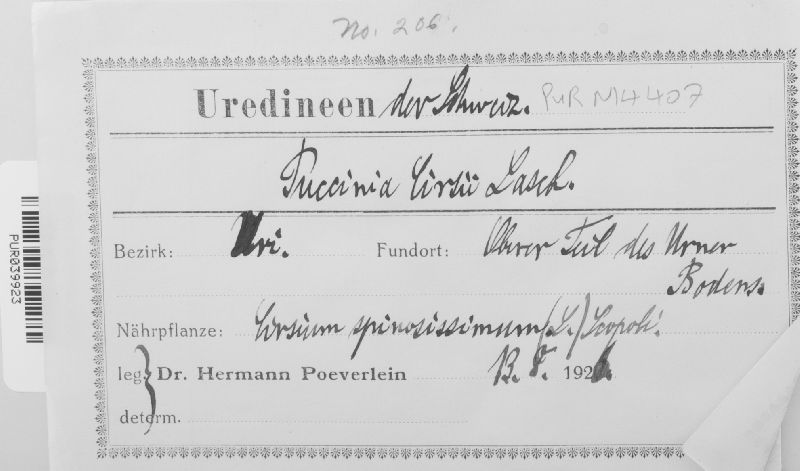 No. 206.
Uredineen der Schweiz. PUR N14407
Puccinia Cirsii Lasch.
Bezirk: Uri. Fundort: Oberer Teil des Urner
Bodens.
Nährpflanze: Cirsium spinosissimum (L.) Scopoli.
leg. Dr. Hermann Poeverlein 13. 8. 192
determ.
PUR039923